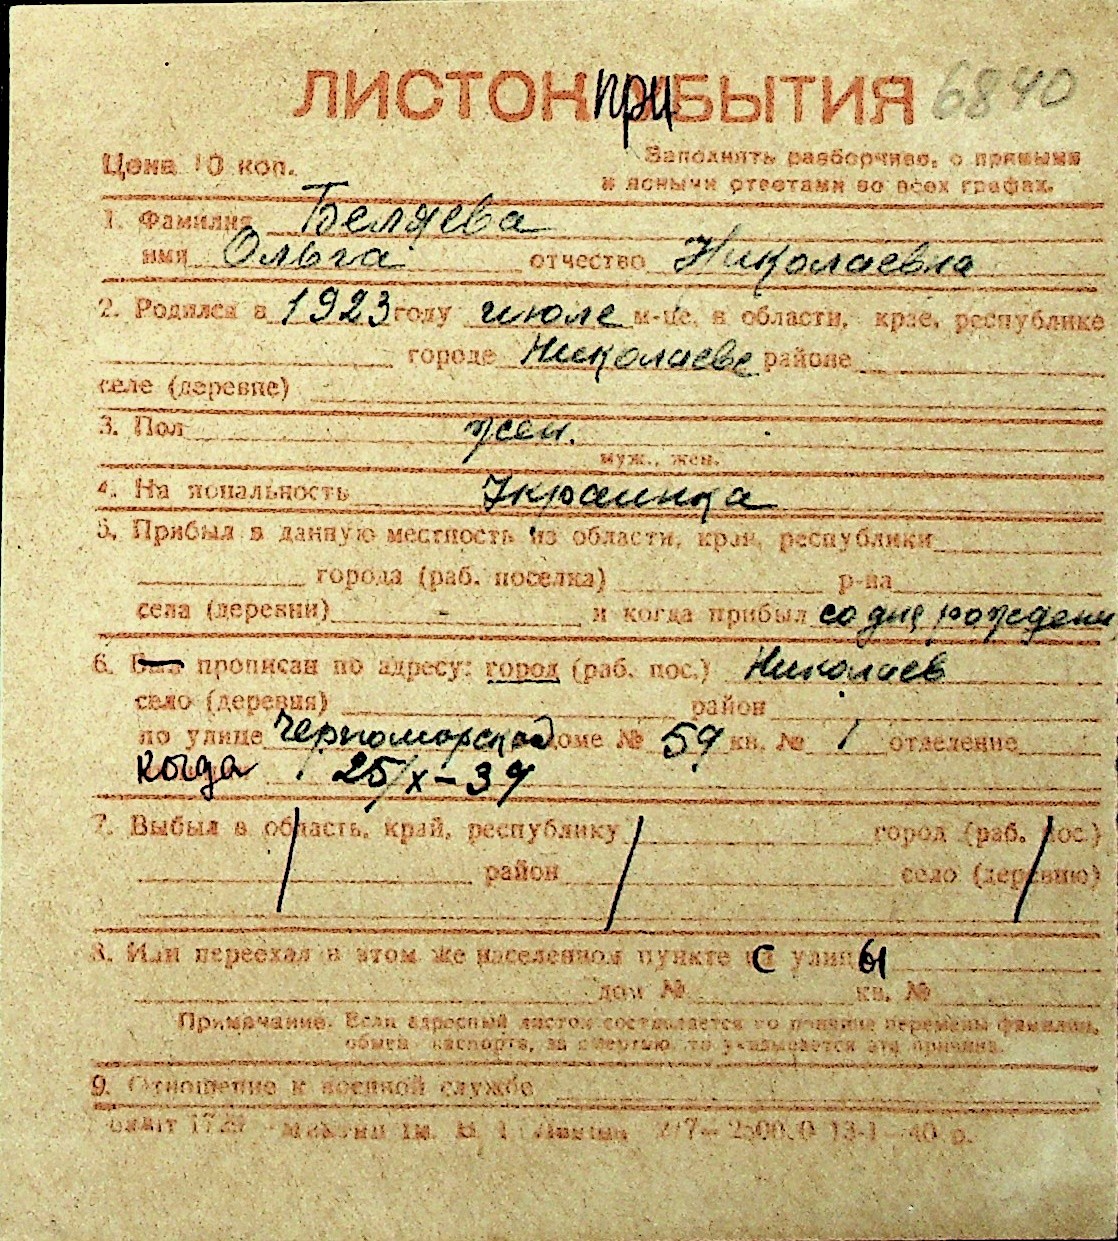 ЛИСТОК ПРИБЫТИЯ 6840
Цена 10 коп. Заполнять разборчиво, с прямыми
и ясными ответами во всех графах.
1. Фамилия Беляева
имя Ольга отчество Николаевна
2. Родился в 1923 году июле м-це, в области, крае, республике
городе Николаеве районе
селе (деревне)
3. Пол жен.
муж., жен.
4. Национальность Украинка
5. Прибыл в данную местность из области, края, республики
города (раб. поселка) р-на
села (деревни) - и когда прибыл со дня рождени
6. прописан по адресу: город (раб. пос.) Николаев
село (деревня) район
по улице Черноморской доме № 59 кв. № 1 отделение
Когда 25/X-39
7. Выбыл в область, край, республику город (раб. пос.)
район село (деревню)
8. Или переехал в этом же населенном пункте с улицы
дом № кв. №
Примечание. Если адресный листок составляется по причине перемены фамилии,
обмен паспорта, за смертью, то указывается эта причина.
9. Отношение к военной службе
13-I-40 р.